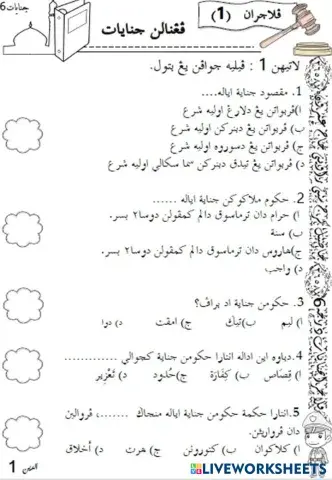 جنايات 6
ڤلاجران (1)
ڤڠنالن جنايات
لاتيهن 1 : ڤيليه جواڤن يڠ بتول.
1. مقصود جناية اياله....
ا) ڤربواتن يڠ دلارڠ اوليه شرع
ب) ڤربواتن يڠ دبنركن اوليه شرع
ج) ڤربواتن يڠ دسوروه اوليه شرع
د) ڤربواتن يڠ تيدق دبنركن سما سكالي اوليه شرع
2. حكوم ملاكوكن جناية اياله ......
ا) حرام دان ترماسوق دالم كمڤولن دوسا٢ بسر.
ب) سنة
ج) هاروس دان ترماسوق دالم كمڤولن دوسا٢ بسر.
د) واجب
3. حكومن جناية اد براڤ؟
ا) ليم ب) تيݢ ج) امڤت د) دوا
4. دباوه اين اداله انتارا حكومن جناية كچوالي .............
ا) قِصَاص ب) كِفَارَة ج) حُدود د) تَعْزِير
5. انتارا حكمة حكومن جناية اياله منجاݢ .......، ڤربوالين
دان ڤرواريثن.
ا) كلاكوان ب) كتورونن ج) هرت د) أخلاق
1
LIVEWORKSHEETS